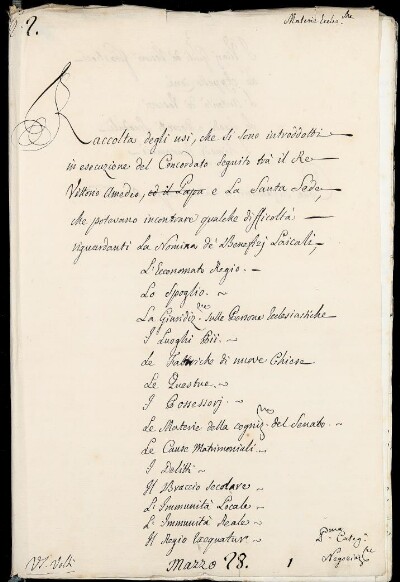 2.
Materie Eccles.che
Raccolta degli usi, che si sono introddotti
in esecuzione del Concordato seguito trà il Re
Vittorio Amedeo, ed il Papa e La Santa Sede,
che potevano incontrare qualche difficoltà
riguardanti La Nomina de' Beneficj Laicali,
L'Economato Regio.
Lo Spoglio.
La Giurisdiz.ne sulle Persone Ecclesiastiche
I Luoghi Pii.
Le Fabbriche di nuove Chiese
Le Questue.
I Possessorj.
Le Materie della cogniz.ne del Senato.
Le Cause Matrimoniali.
I Delitti
Il Braccio Secolare
L'Immunità Locale
L'Immunità Reale
Il Regio Exequatur.
P.ma Categ.
Negoziaz.
Mazzo 28. 1